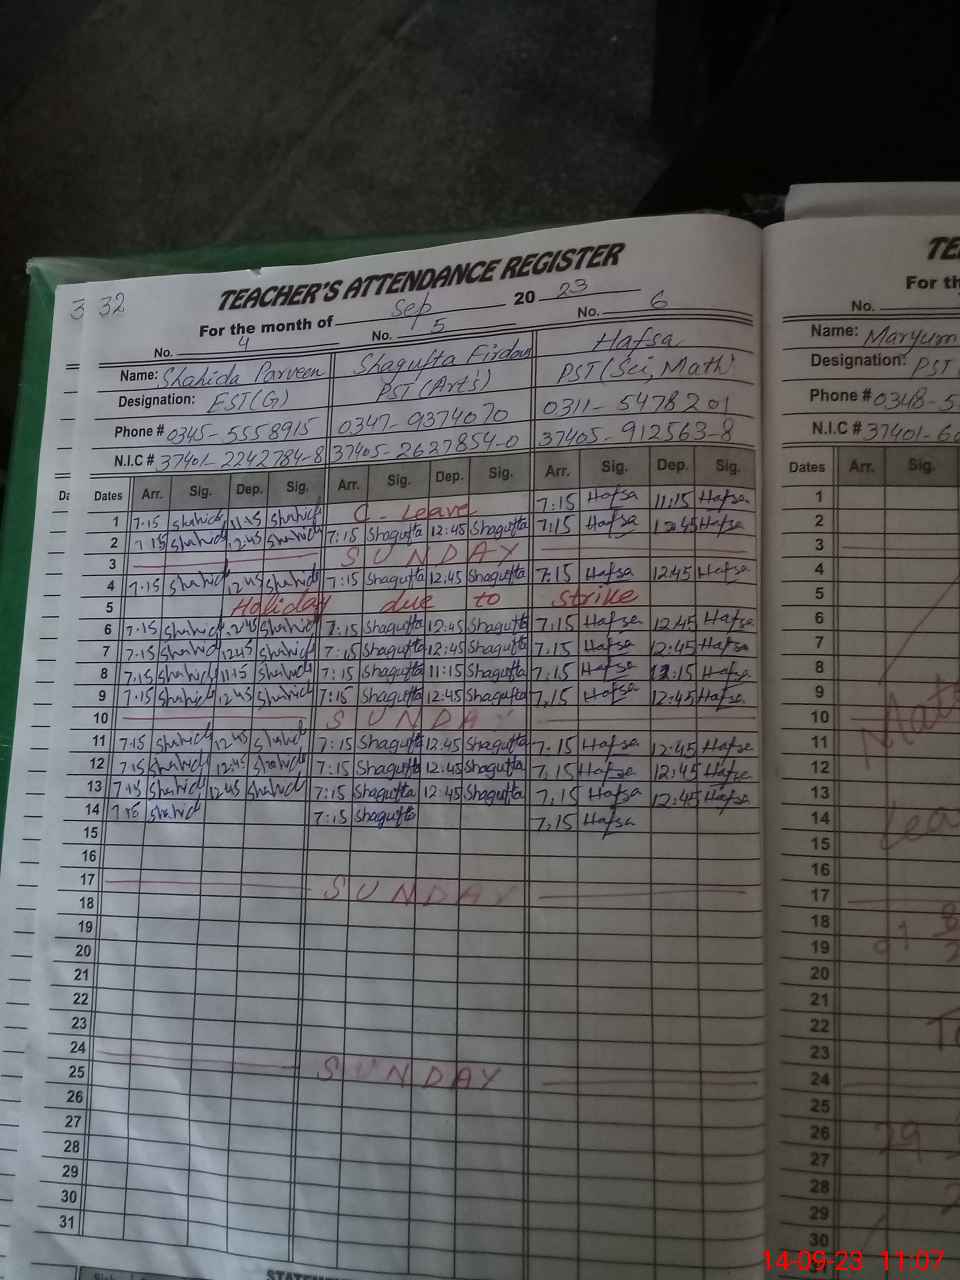 3 32
TEACHER'S ATTENDANCE REGISTER
For the month of Sep 2023
No. 4 No. 5 No. 6
Name: Shahida Parveen Shagufta Firdous Hafsa
Designation: EST(G) PST(Arts) PST(Sci, Math)
Phone # 0345-5558915 0347-9374070 0311-5478201
N.I.C # 37401-2242784-8 37405-2627854-0 37405-912563-8
Dates Arr. Sig. Dep. Sig. Arr. Sig. Dep. Sig. Arr. Sig. Dep. Sig.
1 7.15 Shahid 11:15 Shahid C-Leave 7.15 Hafsa 11:15 Hafsa
2 7.15 Shahid 12:45 Shahid 7:15 Shagufta 12:45 Shagufta 7.15 Hafsa 12:45 Hafsa
3 SUNDAY
4 7.15 Shahid 12:45 Shahid 7:15 Shagufta 12:45 Shagufta 7:15 Hafsa 12:45 Hafsa
5 Holiday due to strike
6 7.15 Shahid 12:45 Shahid 7:15 Shagufta 12:45 Shagufta 7.15 Hafsa 12:45 Hafsa
7 7.15 Shahid 12:45 Shahid 7:15 Shagufta 12:45 Shagufta 7.15 Hafsa 12:45 Hafsa
8 7.15 Shahid 11:15 Shahid 7:15 Shagufta 11:15 Shagufta 7.15 Hafsa 11:15 Hafsa
9 7.15 Shahid 12:45 Shahid 7:15 Shagufta 12:45 Shagufta 7.15 Hafsa 12:45 Hafsa
10 SUNDAY
11 7.15 Shahid 12:45 Shahid 7:15 Shagufta 12:45 Shagufta 7.15 Hafsa 12:45 Hafsa
12 7.15 Shahid 12:45 Shahid 7:15 Shagufta 12:45 Shagufta 7.15 Hafsa 12:45 Hafsa
13 7.15 Shahid 12:45 Shahid 7:15 Shagufta 12:45 Shagufta 7.15 Hafsa 12:45 Hafsa
14 7.15 Shahid 7:15 Shagufta 7.15 Hafsa
15
16
17 SUNDAY
18
19
20
21
22
23
24 SUNDAY
25
26
27
28
29
30
31
For th
No.
Name: Maryum
Designation: PST
Phone # 0348-5
N.I.C # 37401-60
Dates Arr. Sig.
1
2
3
4
5
6
7
8
9
10
11
12
13
14
15
16
17
18
19
20
21
22
23
24
25
26 29
27
28
29
30
14-09-23 11:07